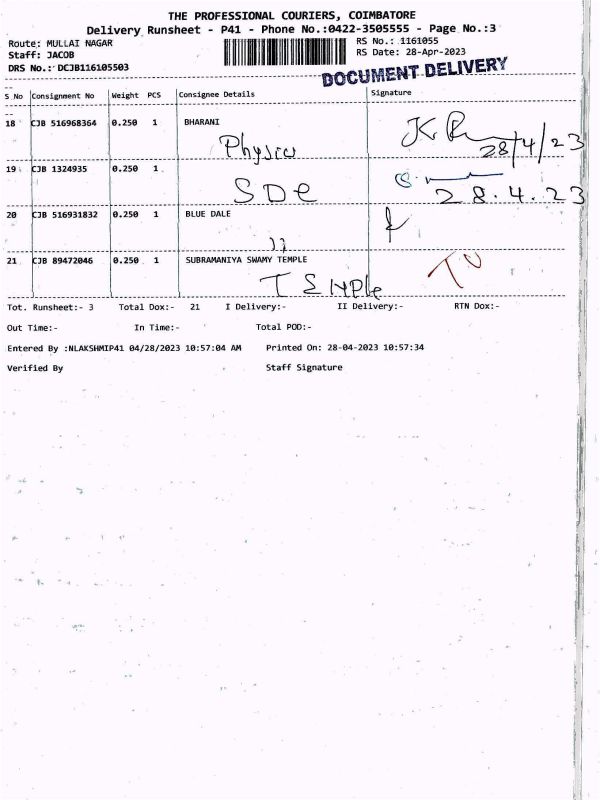 THE PROFESSIONAL COURIERS, COIMBATORE
Delivery Runsheet - P41 - Phone No.:0422-3505555 - Page No.:3
Route: MULLAI NAGAR
RS No.: 1161055
Staff: JACOB
RS Date: 28-Apr-2023
DRS No.: DCJB116105503
DOCUMENT DELIVERY
S No Consignment No Weight PCS Consignee Details Signature
18 CJB 516968364 0.250 1 BHARANI
Physio
28/4/23
19 CJB 1324935 0.250 1
SDC
28.4.23
20 CJB 516931832 0.250 1 BLUE DALE
21 CJB 89472046 0.250 1 SUBRAMANIYA SWAMY TEMPLE
TEMPle
Tot. Runsheet:- 3 Total Dox:- 21 I Delivery:- II Delivery:- RTN Dox:-
Out Time:- In Time:- Total POD:-
Entered By :NLAKSHMIP41 04/28/2023 10:57:04 AM Printed On: 28-04-2023 10:57:34
Verified By Staff Signature